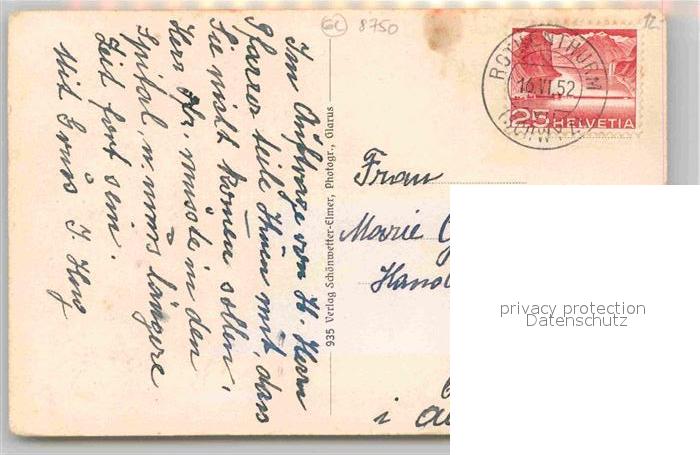 Im Auftrage von H. Herrn
Pfarrer teile Ihnen mit, dass
Sie nicht komen sollen,
Herr Pfr. musste in den
Spital, u. wird längere
Zeit fort sein.
Mit Gruss J.
935 Verlag Schönwetter-Elmer, Photogr., Glarus
GL 8750
12.-
ROTHENTHURM
16.VI.52
(SCHWYZ)
25 HELVETIA
Frau
Marie
i
privacy protection
Datenschutz